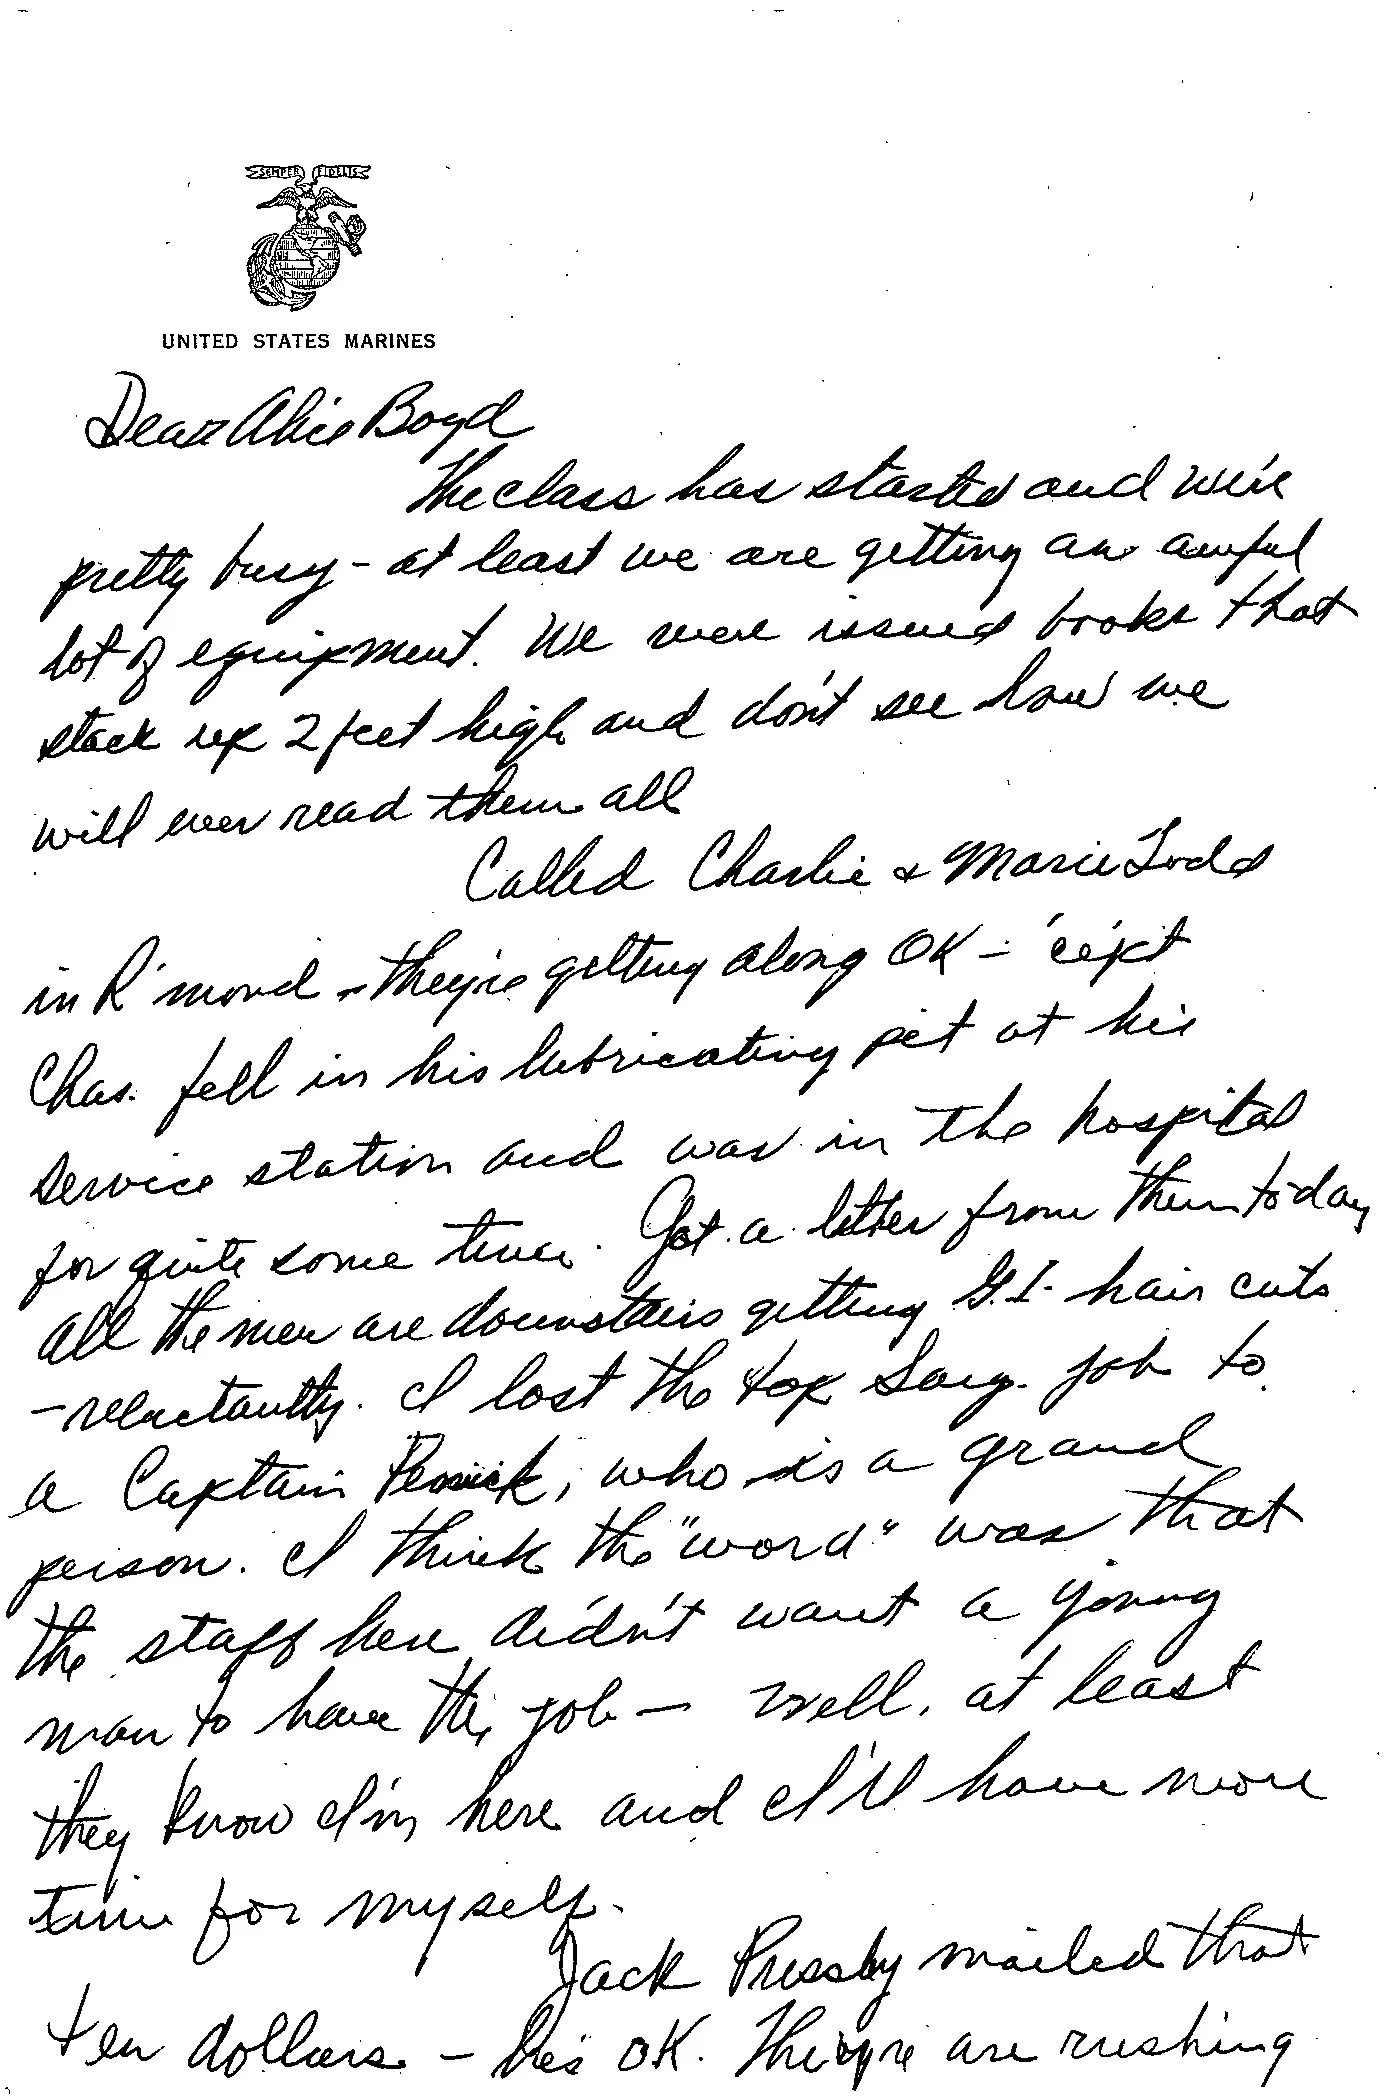 SEMPER FIDELIS
UNITED STATES MARINES
Dear Alice Boyd
The class has started and we're
pretty busy - at least we are getting an awful
lot of equipment. We were issued books that
stack up 2 feet high and don't see how we
will ever read them all
Called Charlie & Marie Todd
in R'mond - they're getting along OK - 'cept
Chas. fell in his lubricating pit at his
service station and was in the hospital
for quite some time. Got a letter from them today
All the men are downstairs getting G.I. hair cuts
- reluctantly. I lost the top Sarg. job to
a Captain, who is a grand
person. I think the "word" was that
the staff here didn't want a young
man to have the job - well, at least
they know I'm here and I'll have more
time for myself.
Jack Pressby mailed that
ten dollars - he's OK. They're are rushing